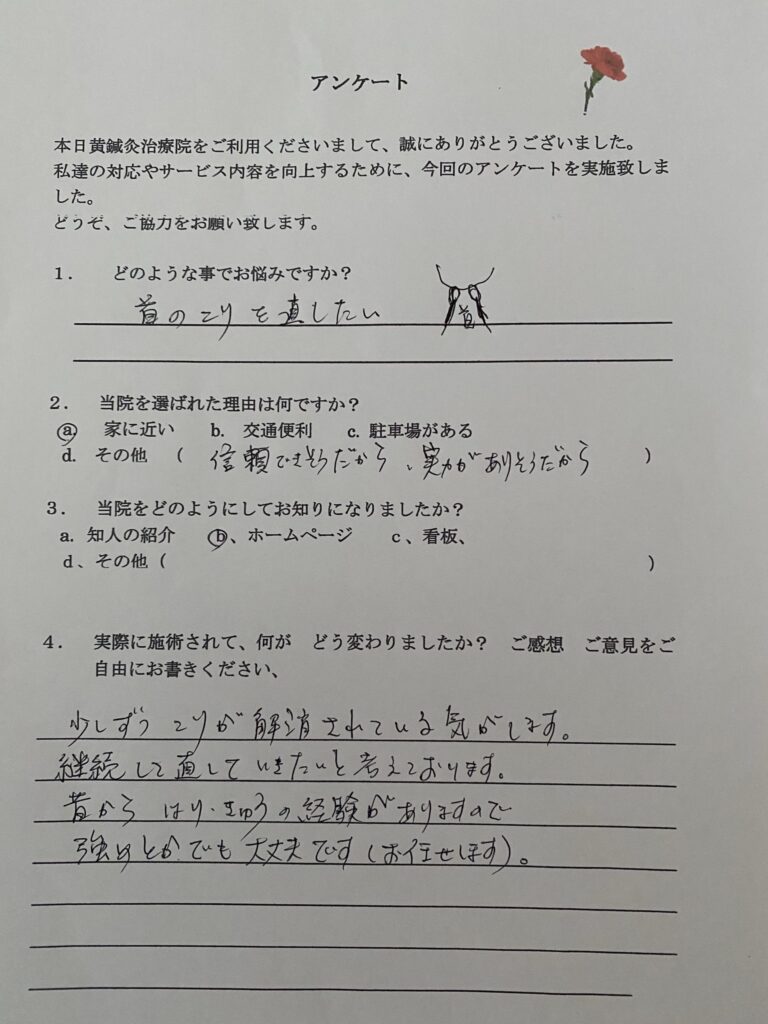 アンケート
本日黄鍼灸治療院をご利用くださいまして、誠にありがとうございました。
私達の対応やサービス内容を向上するために、今回のアンケートを実施致しま
した。
どうぞ、ご協力をお願い致します。
1．　どのような事でお悩みですか？
首のこりを直したい
首
2．　当院を選ばれた理由は何ですか？
a. 家に近い　b. 交通便利　c. 駐車場がある
d. その他　（ 信頼できそうだから、実力がありそうだから ）
3．　当院をどのようにしてお知りになりましたか？
a. 知人の紹介　b、ホームページ　c、看板、
d、その他（　　　）
4．　実際に施術されて、何が　どう変わりましたか？　ご感想　ご意見をご
自由にお書きください、
少しずつ こりが解消されている気がします。
継続して直していきたいと考えております。
昔から はり・きゅうの経験がありますので
強めとかでも大丈夫です(お任せします)。